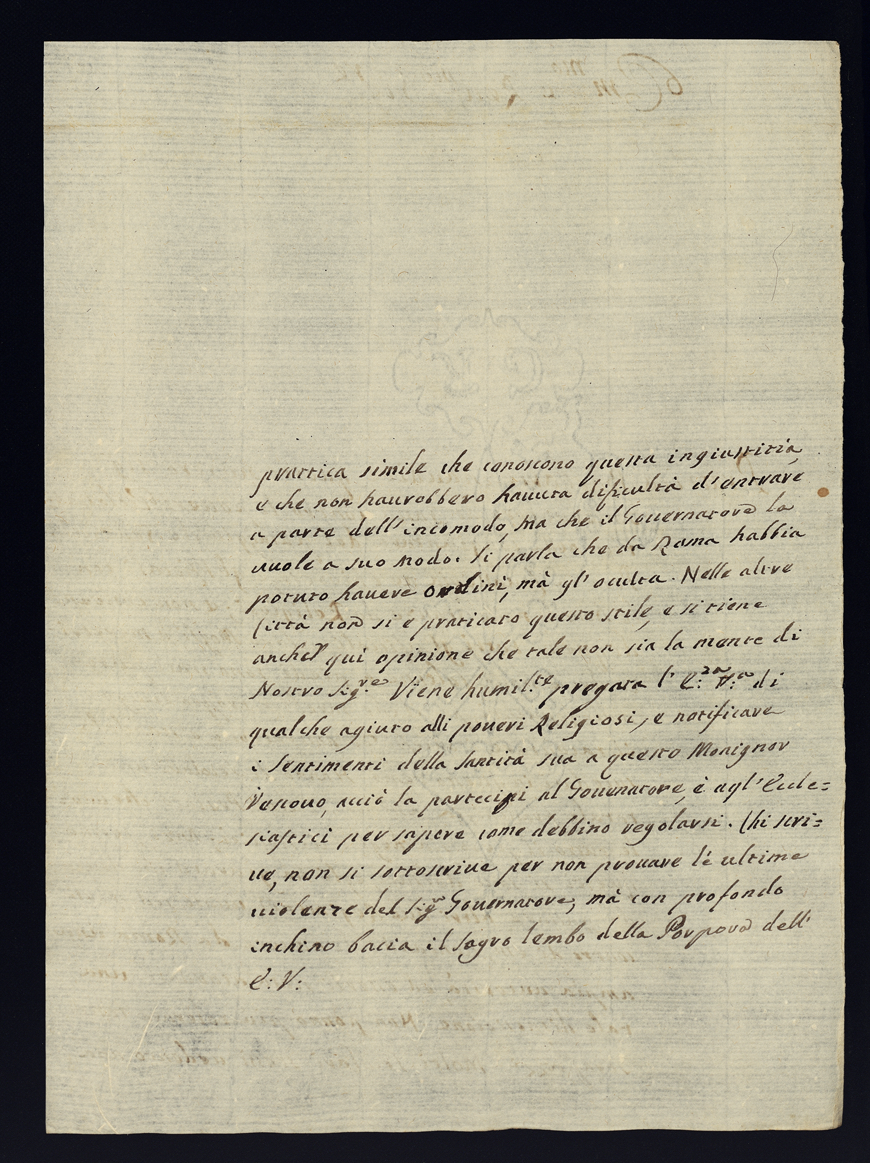 prattica simile che conoscono questa ingiustitia,
e che non haurebbero hauuta dificultà d'entrare
a parte dell'incomodo, ma che il Gouernatore la
vuole a suo modo. Si parla che da Roma habbia
potuto hauere ordini, mà gl'oculta. Nelle altre
Città non si è praticato questo stile, e si tiene
anche qui opinione che tale non sia la mente di
Nostro Sig:re Viene humil:te pregata l'E:za V:a di
qualche agiuto alli poueri Religiosi, e notificare
i sentimenti della Santità sua a questo Monsignor
Vescouo, acciò la partecipi al Gouernatore, è agl'Eccle=
siastici per sapere come debbino regolarsi. Chi scri=
ue, non si sottoscriue per non prouare le ultime
violenze del Sig:r Gouernatore, mà con profondo
inchino bacia il sagro lembo della Porpora dell'
E: V: